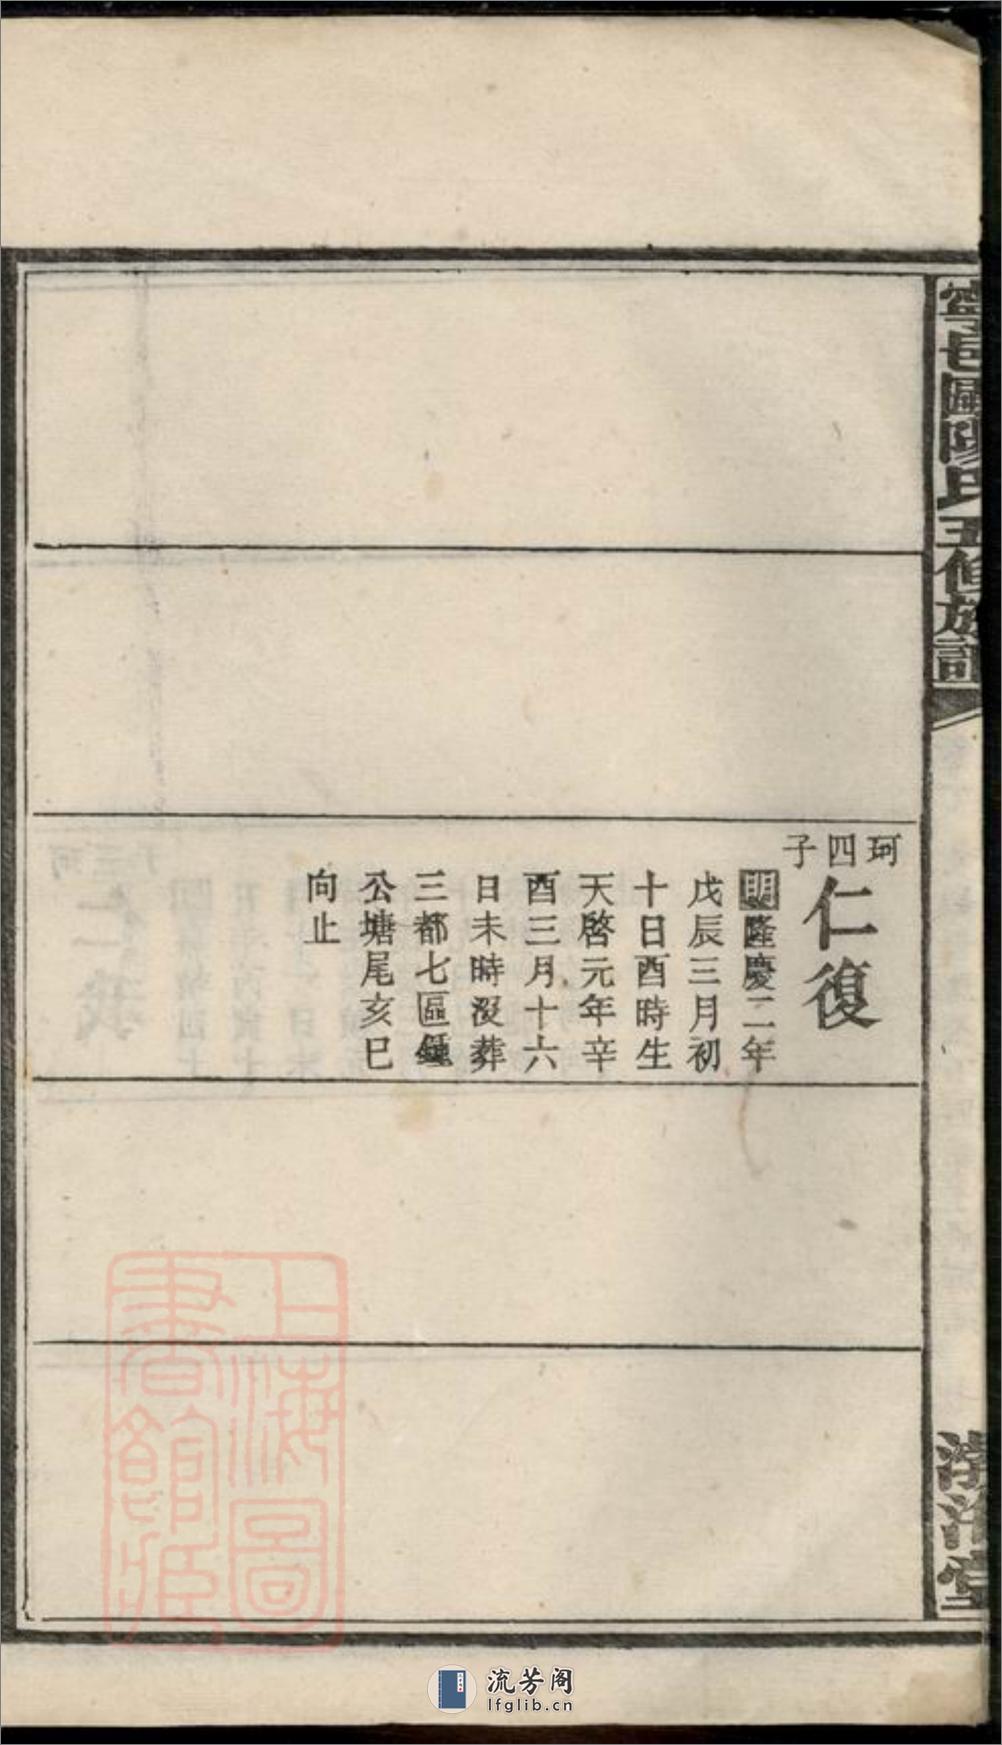 寧邑歐陽氏五修族譜
珂四子
仁復
明隆慶二年
戊辰三月初
十日酉時生
天啓元年辛
酉三月十六
日未時沒葬
三都七區
公塘尾亥巳
向止
上海圖
書館藏
流芳阁
lfglib.cn